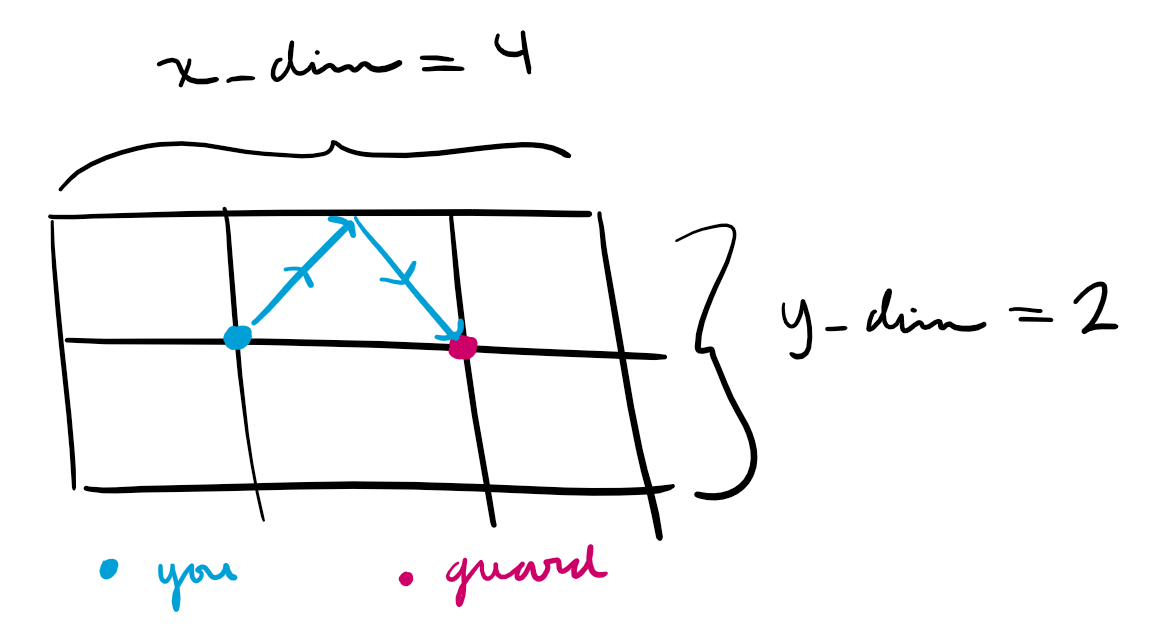 x_dim = 4
y_dim = 2
you
guard